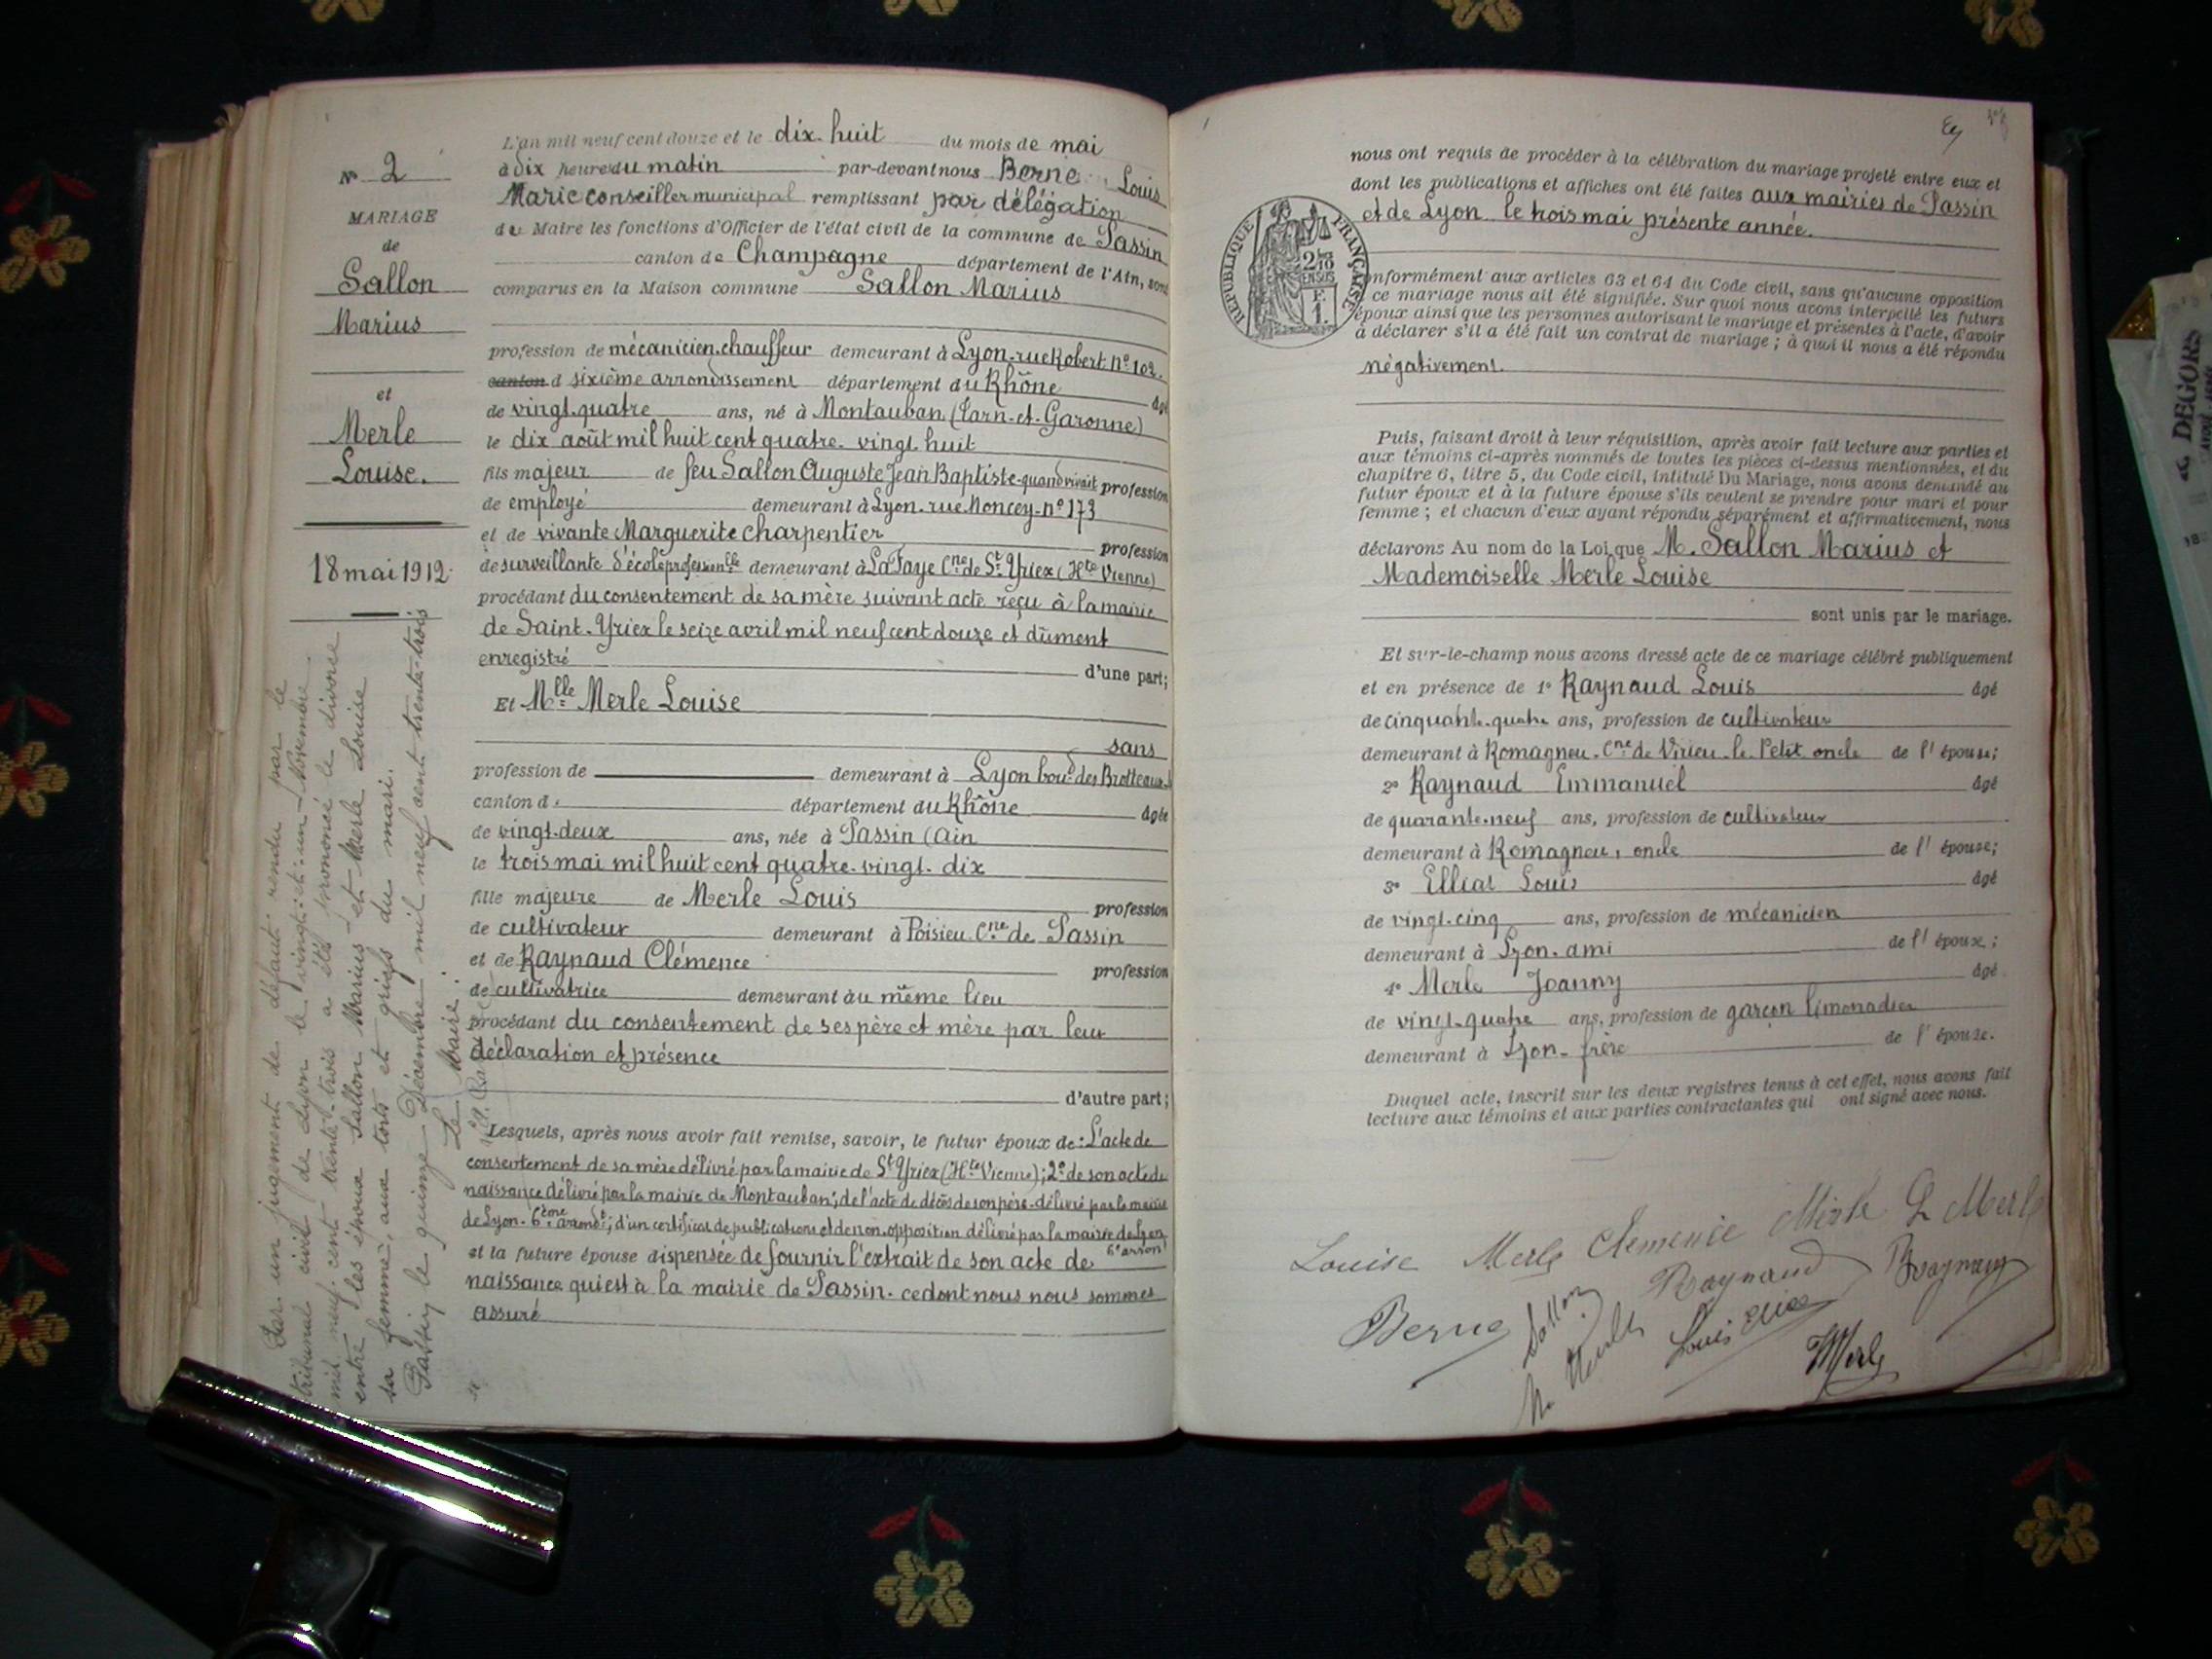 L'an mil neuf cent douze et le dix-huit du mois de mai
à dix heures du matin par-devant nous Berne Louis
Marie conseiller municipal remplissant par délégation
du Maire les fonctions d'Officier de l'état civil de la commune de Passin
canton de Champagne département de l'Ain, sont
comparus en la Maison commune Sallon Marius
profession de mécanicien-chauffeur demeurant à Lyon-rue Robert n° 102.
canton d sixième arrondissement département du Rhône âgé
de vingt-quatre ans, né à Montauban (Tarn-et-Garonne)
le dix août mil huit cent quatre-vingt huit
fils majeur de feu Sallon Auguste Jean Baptiste-quand vivait profession
de employé demeurant à Lyon-rue Moncey-n° 173
et de vivante Marguerite Charpentier profession
de surveillante d'école professionlle demeurant à La Faye Cne de St Yrieix (Hte Vienne)
procédant du consentement de sa mère suivant acte reçu à la mairie
de Saint-Yrieix le seize avril mil neuf cent douze et dûment
enregistré d'une part;
Et Mlle Merle Louise
sans
profession de demeurant à Lyon boud des Brotteaux
canton d département du Rhône âgée
de vingt-deux ans, née à Passin (Ain
le trois mai mil huit cent quatre-vingt-dix
fille majeure de Merle Louis profession
de cultivateur demeurant à Poisieu Cne de Passin
et de Raynaud Clémence profession
de cultivatrice demeurant au même lieu
procédant du consentement de ses père et mère par leur
déclaration et présence
d'autre part;
Lesquels, après nous avoir fait remise, savoir, le futur époux de: L'acte de
consentement de sa mère délivré par la mairie de St Yrieix (Hte Vienne); 2° de son acte de
naissance délivré par la mairie de Montauban; de l'acte de décès de son père-délivré par la mairie
de Lyon-6ème arrondt; d'un certificat de publications et de non-opposition délivré par la mairie de Lyon
6e arront
et la future épouse dispensée de fournir l'extrait de son acte de
naissance qui est à la mairie de Passin-ce dont nous nous sommes
assuré
N° 2
MARIAGE
de
Sallon
Marius
et
Merle
Louise.
18 mai 1912.
Par un jugement de défaut rendu par le
tribunal civil de Lyon le vingt-et-un Novembre
mil neuf cent trente-trois a été prononcé le divorce
entre les époux Sallon Marius et Merle Louise
sa femme, aux torts et griefs du mari.
Passin le quinze Décembre mil neuf cent trente-trois
Le Maire:
nous ont requis de procéder à la célébration du mariage projeté entre eux et
dont les publications et affiches ont été faites aux mairies de Passin
et de Lyon le trois mai présente année.
RÉPUBLIQUE FRANÇAISE
2/10 EN SUS
F.
1.
onformément aux articles 63 et 64 du Code civil, sans qu'aucune opposition
ce mariage nous ait été signifiée. Sur quoi nous avons interpellé les futurs
époux ainsi que les personnes autorisant le mariage et présentes à l'acte, d'avoir
à déclarer s'il a été fait un contrat de mariage; à quoi il nous a été répondu
négativement.
Puis, faisant droit à leur réquisition, après avoir fait lecture aux parties et
aux témoins ci-après nommés de toutes les pièces ci-dessus mentionnées, et du
chapitre 6, titre 5, du Code civil, intitulé Du Mariage, nous avons demandé au
futur époux et à la future épouse s'ils veulent se prendre pour mari et pour
femme; et chacun d'eux ayant répondu séparément et affirmativement, nous
déclarons Au nom de la Loi que M. Sallon Marius et
Mademoiselle Merle Louise
sont unis par le mariage.
Et sur-le-champ nous avons dressé acte de ce mariage célébré publiquement
et en présence de 1° Raynaud Louis âgé
de cinquante-quatre ans, profession de cultivateur
demeurant à Romagneu-Cne de Virieu-le Petit oncle de l'épouse;
2° Raynaud Emmanuel âgé
de quarante-neuf ans, profession de cultivateur
demeurant à Romagneu, oncle de l'épouse;
3° Elliat Louis âgé
de vingt-cinq ans, profession de mécanicien
demeurant à Lyon-ami de l'époux;
4° Merle Joanny âgé
de vingt-quatre ans, profession de garçon limonadier
demeurant à Lyon-frère de l'épouse.
Duquel acte, inscrit sur les deux registres tenus à cet effet, nous avons fait
lecture aux témoins et aux parties contractantes qui ont signé avec nous.
Louise Merle Clemence Merle L Merle
Raynaud Raynaud
Berne Sallon Louis
Merle
DEGORS